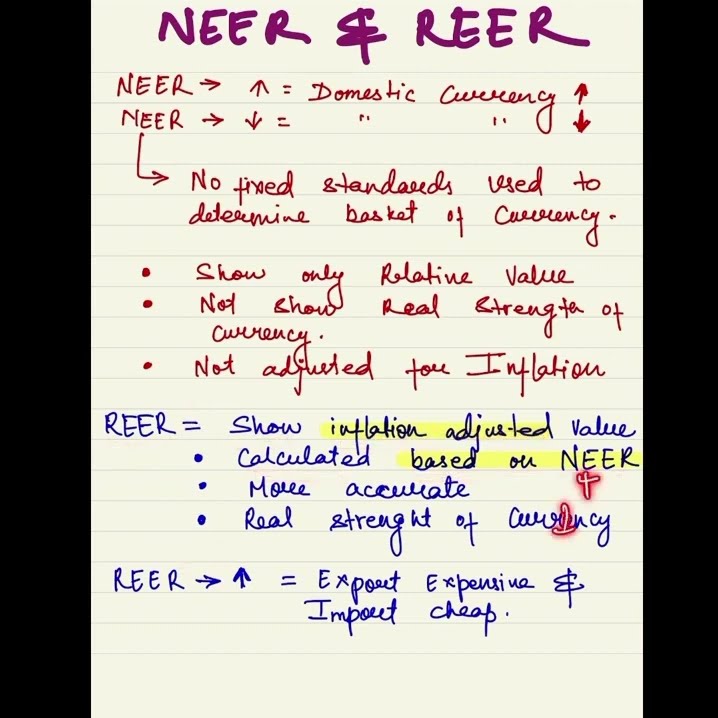 NEER & REER
NEER → ↑ = Domestic Currency ↑
NEER → ↓ = " " ↓
↳ No fixed standards used to
determine basket of Currency.
• Show only Relative Value
• Not show Real Strength of
currency.
• Not adjusted for Inflation
REER = Show inflation adjusted value
• Calculated based on NEER
+
• More accurate
• Real strenght of Currency
I
REER → ↑ = Export Expensive &
Import cheap.